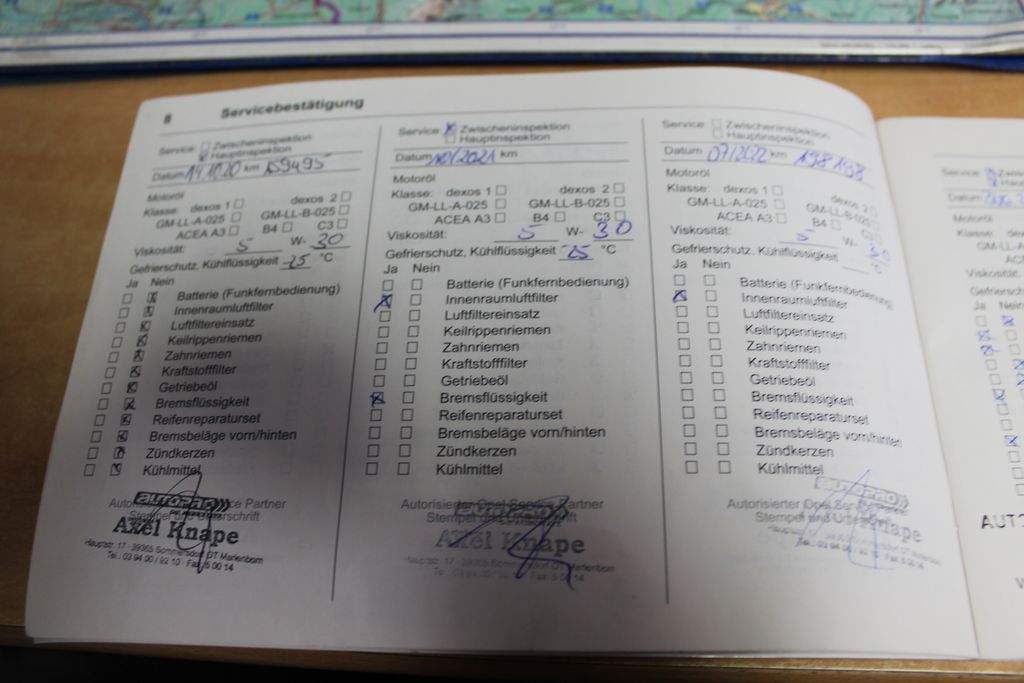 8 Servicebestätigung
Service: ☐ Zwischeninspektion
☒ Hauptinspektion
Datum 14.10.20 km 159495
Motoröl
Klasse: dexos 1 ☐ dexos 2 ☐
GM-LL-A-025 ☐ GM-LL-B-025 ☐
ACEA A3 ☐ B4 ☐ C3 ☐
Viskosität: 5 W- 30
Gefrierschutz, Kühlflüssigkeit -25 °C
Ja Nein
☐ ☒ Batterie (Funkfernbedienung)
☐ ☒ Innenraumluftfilter
☐ ☒ Luftfiltereinsatz
☐ ☒ Keilrippenriemen
☐ ☒ Zahnriemen
☐ ☒ Kraftstofffilter
☐ ☒ Getriebeöl
☐ ☒ Bremsflüssigkeit
☐ ☒ Reifenreparaturset
☐ ☒ Bremsbeläge vorn/hinten
☐ ☒ Zündkerzen
☐ ☒ Kühlmittel
AUTOPRO
Axel Knape
Hauptstr. 17 - 39365 Sommersdorf OT Marienborn
Tel.: 03 94 00 / 92 10 · Fax: 5 00 14
Service ☒ Zwischeninspektion
☐ Hauptinspektion
Datum 10/2021 km
Motoröl
Klasse: dexos 1 ☐ dexos 2 ☐
GM-LL-A-025 ☐ GM-LL-B-025 ☐
ACEA A3 ☐ B4 ☐ C3 ☐
Viskosität: 5 W- 30
Gefrierschutz, Kühlflüssigkeit -25 °C
Ja Nein
☐ ☐ Batterie (Funkfernbedienung)
☒ ☐ Innenraumluftfilter
☐ ☐ Luftfiltereinsatz
☐ ☐ Keilrippenriemen
☐ ☐ Zahnriemen
☐ ☐ Kraftstofffilter
☐ ☐ Getriebeöl
☒ ☐ Bremsflüssigkeit
☐ ☐ Reifenreparaturset
☐ ☐ Bremsbeläge vorn/hinten
☐ ☐ Zündkerzen
☐ ☐ Kühlmittel
Autorisierter Opel Service Partner
Stempel und Unterschrift
Axel Knape
Service: ☐ Zwischeninspektion
☐ Hauptinspektion
Datum 07/2022 km 198198
Motoröl
Klasse: dexos 1 ☐ dexos 2 ☐
GM-LL-A-025 ☐ GM-LL-B-025 ☐
ACEA A3 ☐ B4 ☐ C3 ☐
Viskosität: 5 W- 30
Gefrierschutz, Kühlflüssigkeit °C
Ja Nein
☐ ☐ Batterie (Funkfernbedienung)
☒ ☐ Innenraumluftfilter
☐ ☐ Luftfiltereinsatz
☐ ☐ Keilrippenriemen
☐ ☐ Zahnriemen
☐ ☐ Kraftstofffilter
☐ ☐ Getriebeöl
☐ ☐ Bremsflüssigkeit
☐ ☐ Reifenreparaturset
☐ ☐ Bremsbeläge vorn/hinten
☐ ☐ Zündkerzen
☐ ☐ Kühlmittel
Autorisierter Opel Service
Stempel und
Service
Datum
Motoröl
Klasse:
GM-LL-A
Viskosität:
Ja